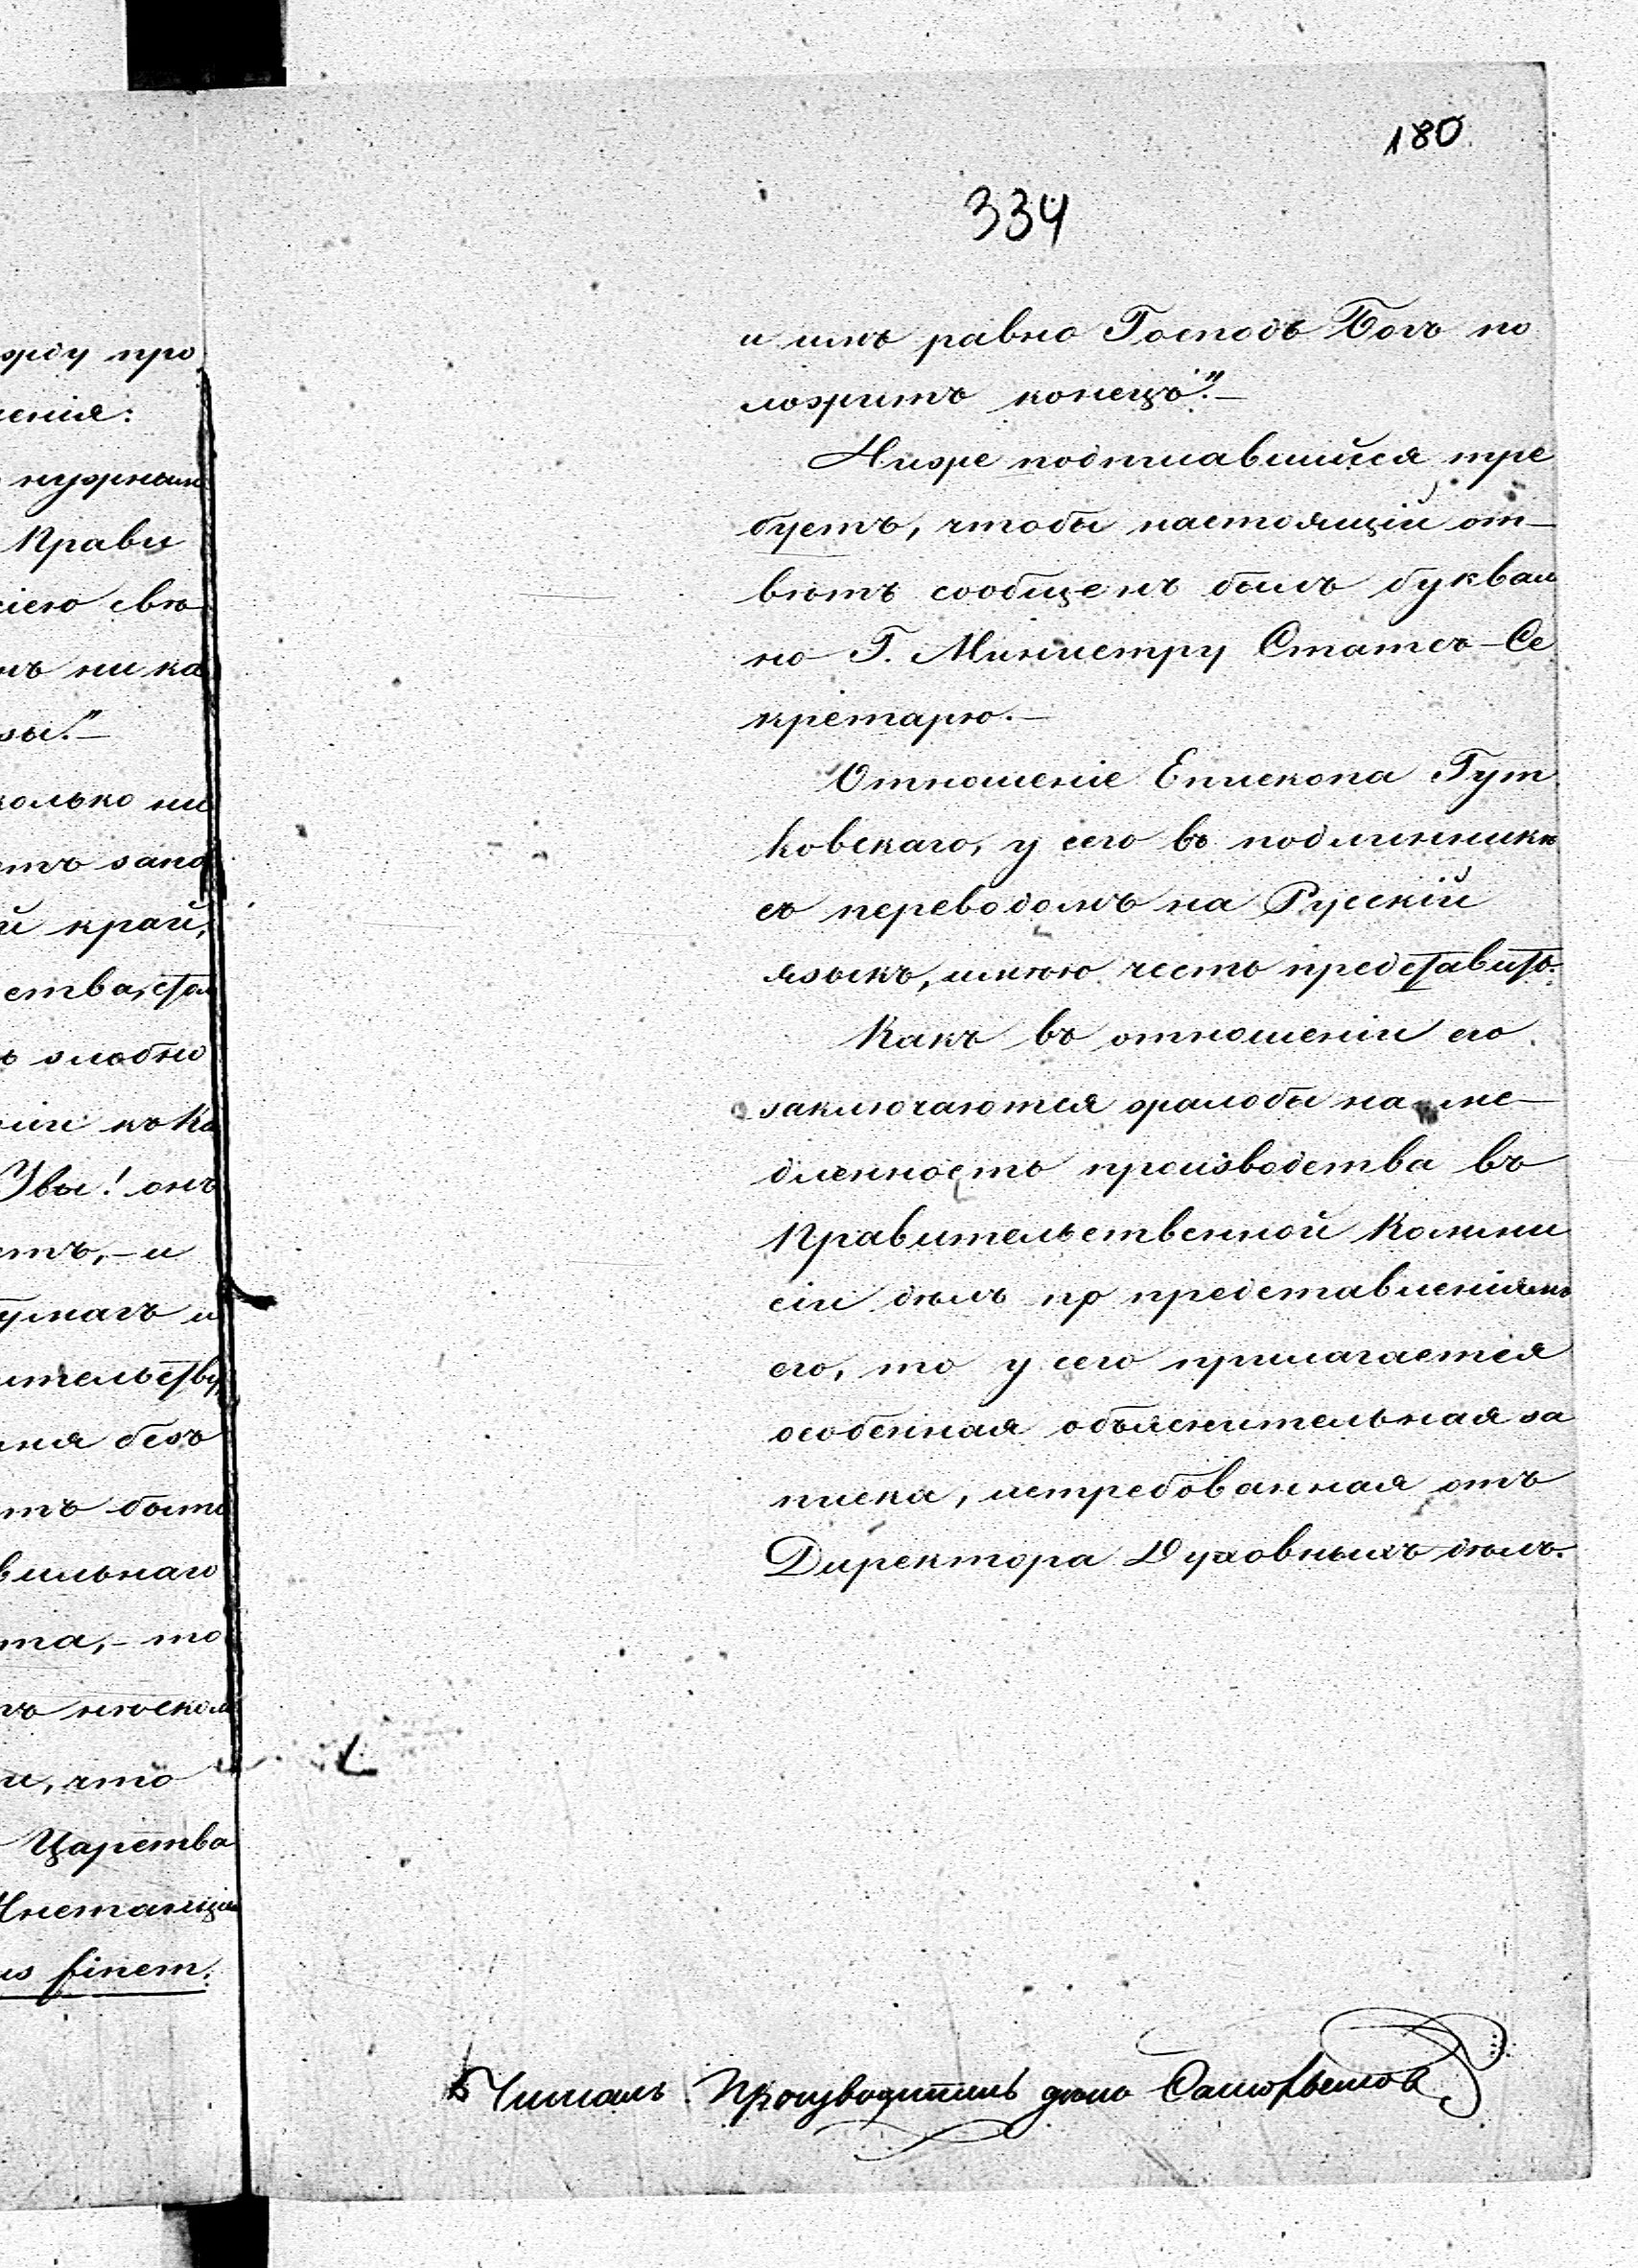 180.
334
и имъ равно Господь Богъ по
ложитъ конецъ."—
Ниже подписавшійся тре
буетъ, чтобы настоящій от—
вѣтъ сообщенъ былъ буквал
но Г. Министру Статсъ-Се
кретарю.—
Отношеніе Епископа Гут
ковскаго, у сего въ подлинникѣ
съ переводомъ на Русскій
языкъ, имѣю честь представить.
Какъ въ отношеніи его
заключаются жалобы на ме—
дленность производства въ
Правительственной Комми
сіи дѣлъ по представленіямъ
его, то у сего прилагается
особенная объяснительная за
писка, истребованная отъ
Директора Духовныхъ дѣлъ.
Читалъ Производитель дѣлъ
жду про
ченія:
нужным
Прави
сіею свѣ
ни ка
зы."—
колько ни
етъ запо
й край,
ства, стол
злобно
къ Ка
Увы! онъ
етъ, – и
умагъ и
ительству
ння безъ
тъ быть
вильнаго
та, – то
нѣском
и, что
Царства
Инстанціи
us finem.